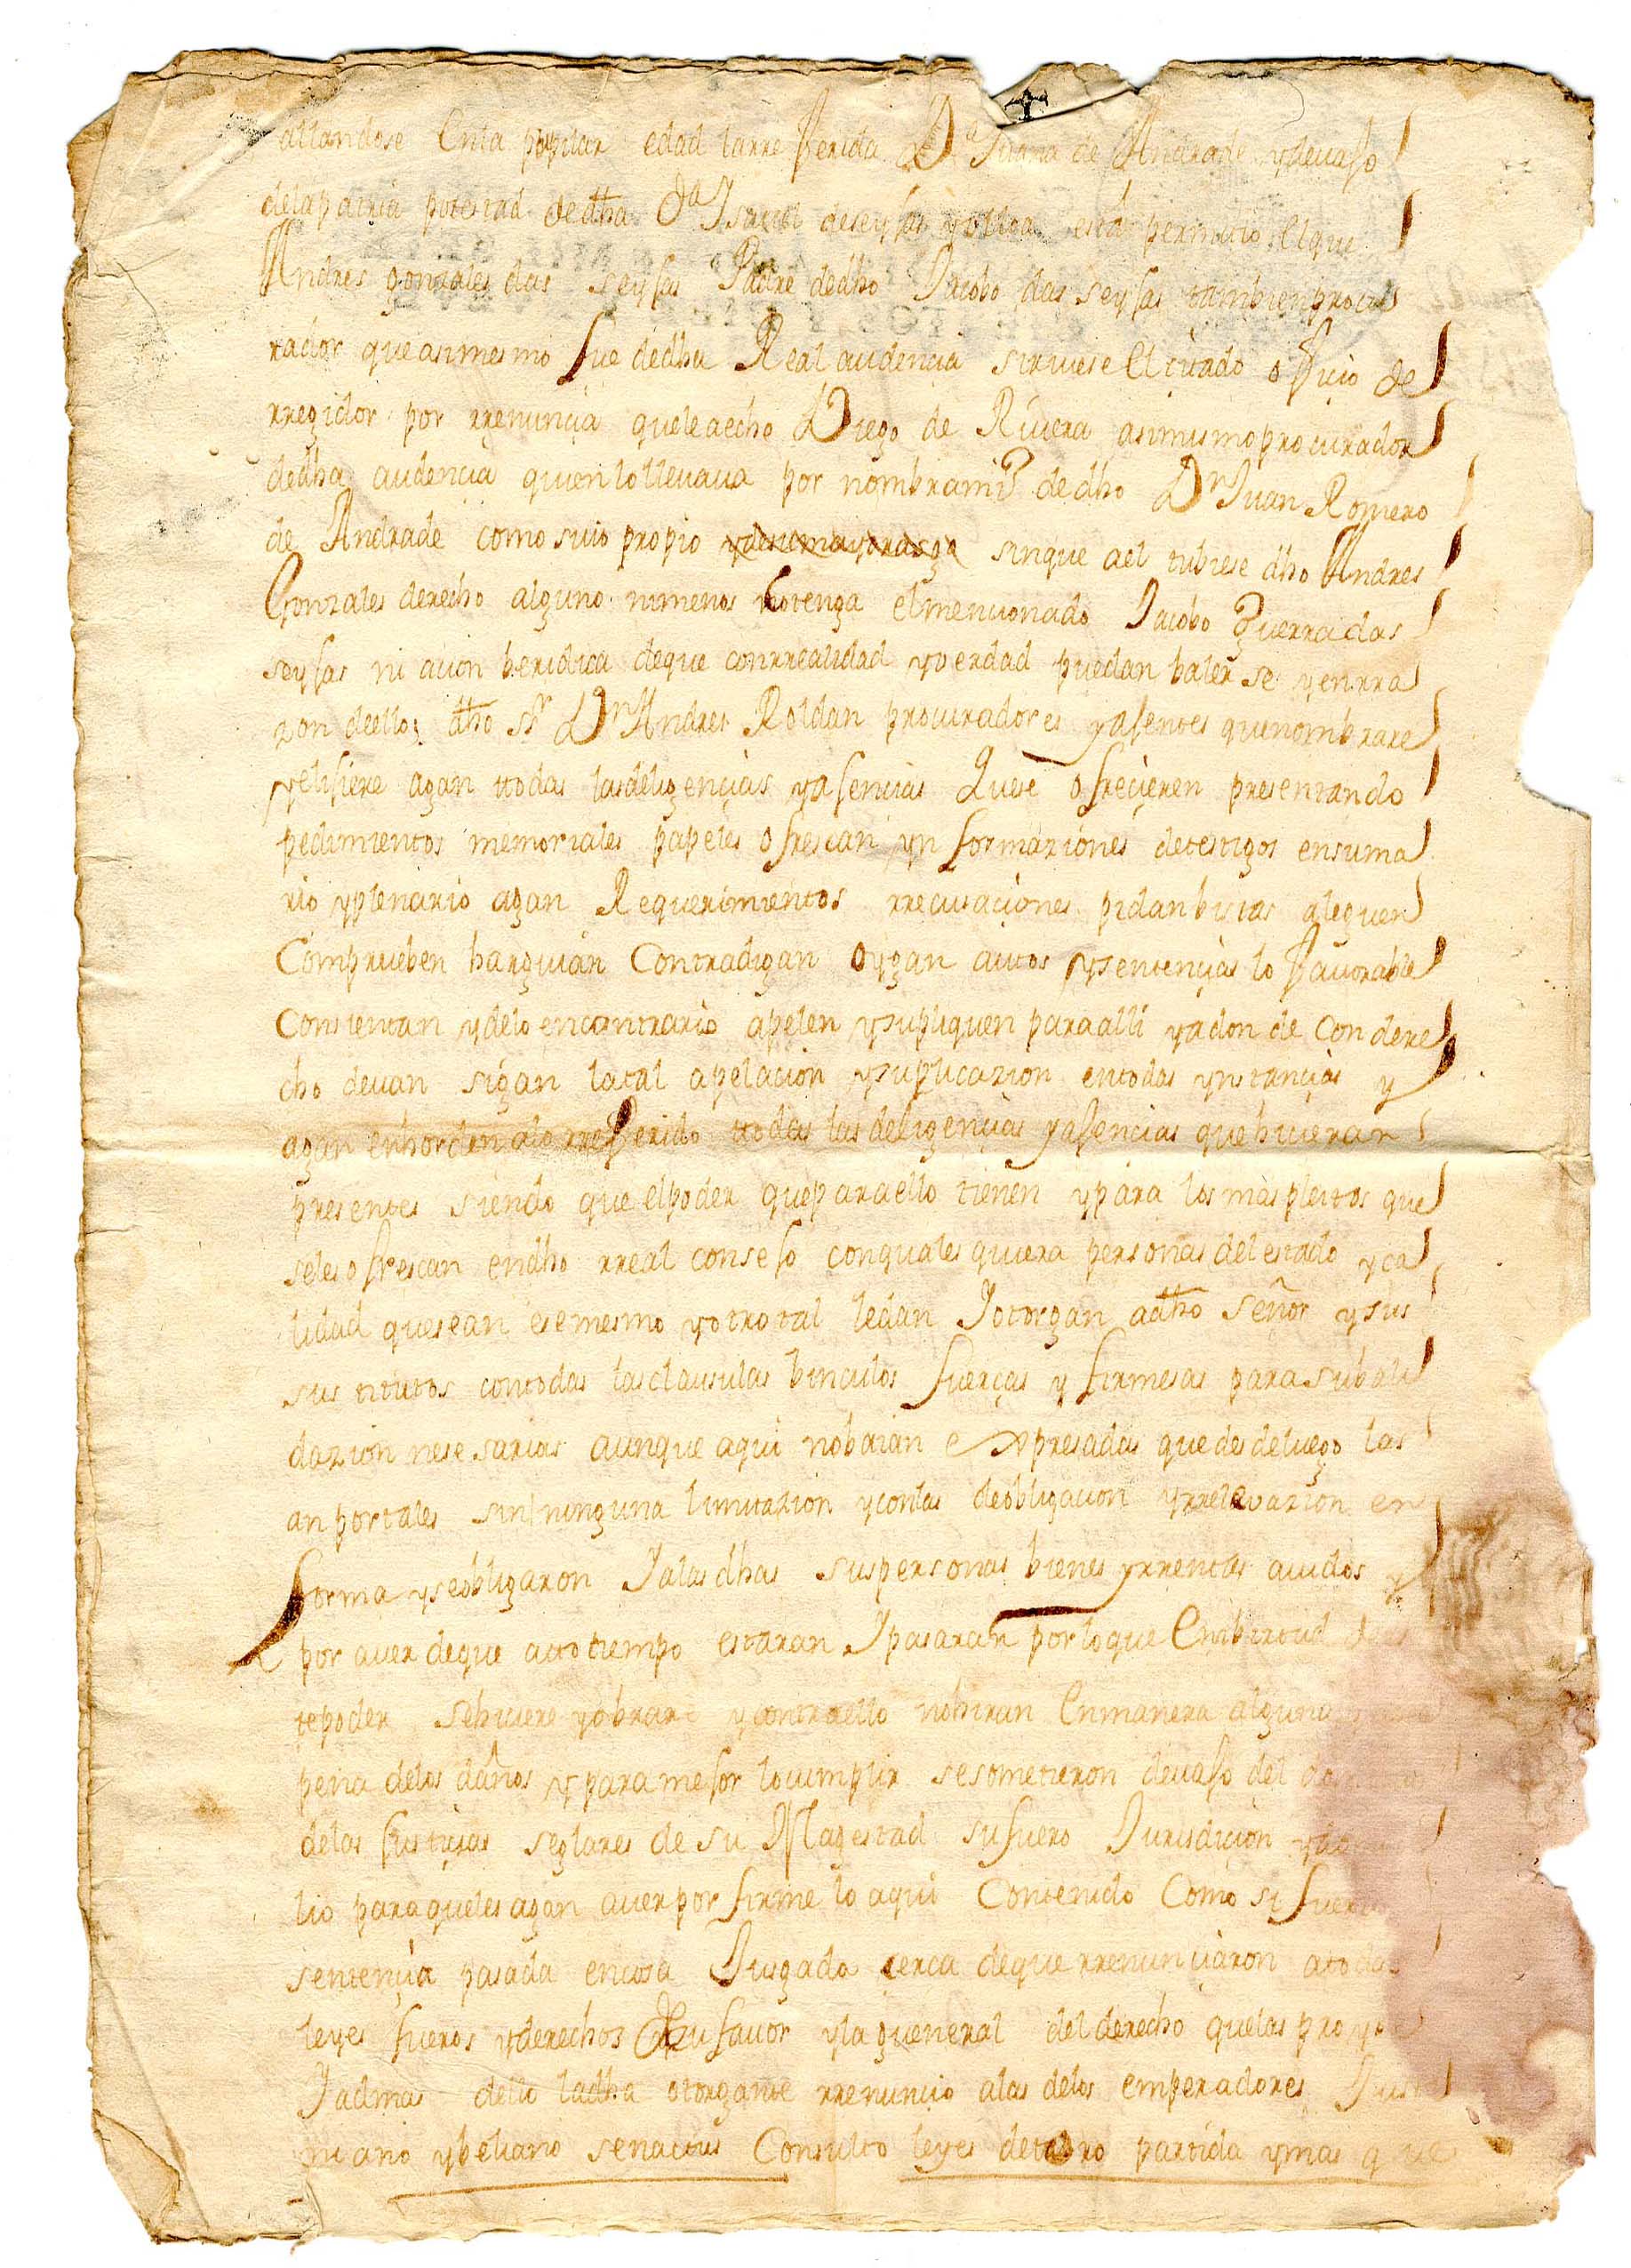 allandose Enla pupilar edad larreferida Da Juana de Andrade ydevajo
delapatria potestad dedha Da Isavel deseyjas yulloa esta permitio, elque
Andres gonzales das seyjas Padre dedho Jacobo das seyjas tambienprocu
rador queasimesmo fue dedha Real audencia sirviese El citado oficio de
rregidor por rrenuncia queleaecho Diego de Rivera asimismoprocurador
dedha audencia quienlollevava por nombramto dedho Dn Juan Romero
de Andrade como suio propio ydesumayorasgo sinque ael tubiese dho Andres
Gonzales derecho alguno nimenos lotenga elmencionado Jacobo Guerradas
seyjas ni acion beridica deque conrrealidad yverdad puedan balerse yenrra
zon deello; dho sr Dn Andres Roldan procuradores yajentes quenombrare
yelijiere agan ttodas lasdeligencias yajencias Quese ofrecieren presentando
pedimientos memoriales papeles ofrescan ynformaziones detestigos ensuma
rio yplenario agan Requerimientos rrecusaciones pidanbistas aleguen
Comprueben harguian Contradigan oygan autos ysentencias lo favorable
Consientan ydelo encontrario apelen ysupliquen paraalli yadonde Con dere
cho devan sigan latal apelacion ysuplicazion entodas ynstancias y
agan enhorden alo rreferido ttodas las deligencias yajencias quehicieran
presentes siendo que elpoder queparaello tienen ypara losmas pleitos que
seles ofrescan endho rreal consejo conquales quiera personas del estado yca
lidad quesean esemesmo yotrotal ledan Jotorgan adho señor ysus
sustitutos contodas lasclausulas binculos fuerças y firmesas parasubali
dazion nesesarias aunque aqui nobaian expresadas quedesdeluego las
anportales sin ninguna limitazion yconlas deobligacion yrrelevazion en
forma yseobligaron Jalas dhas suspersonas bienes yrrentas avidos y
por aver deque atotiempo estaran Jpasaran porloque Enbirtud des
tepoder sehiciere yobrare ycontraello nohiran Enmanera alguna
pena delos daños yparamejor locumplir sesometieron devajo del
delas justicias seglares de su Magestad sufuero Jurisdicion ydo
lio paraquelesagan averporfirme lo aqui Contenido Como si fuera
sentencia pasada encosa Jusgada cerca deque rrenunciaron atodas
leyes fueros yderechos desufavor ylagueneral delderecho quelas proyve
Jadmas dello ladha otorgante rrenuncio alas delos emperadores Justi
niano ybeliano senactus Consulto leyes detoro partida ymas que